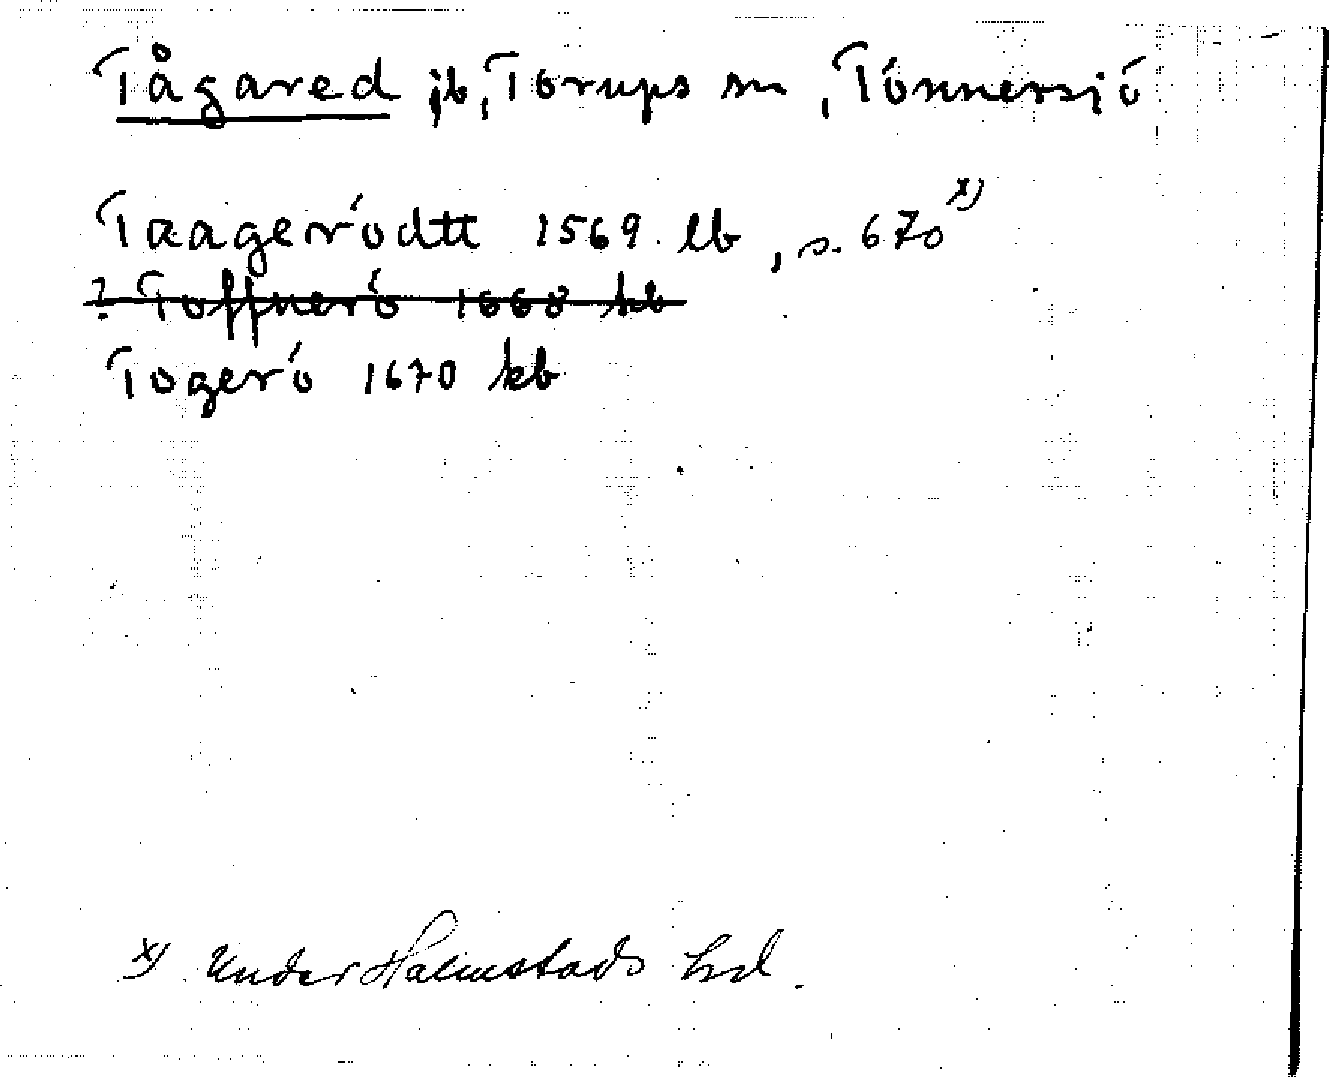 Tågared jb, Torups sn, Tönnersjö
Taageródtt 1569 lb, s. 670 x)
? Toffneró 1668 kb
Togeró 1670 kb
x) Under Halmstads hd.